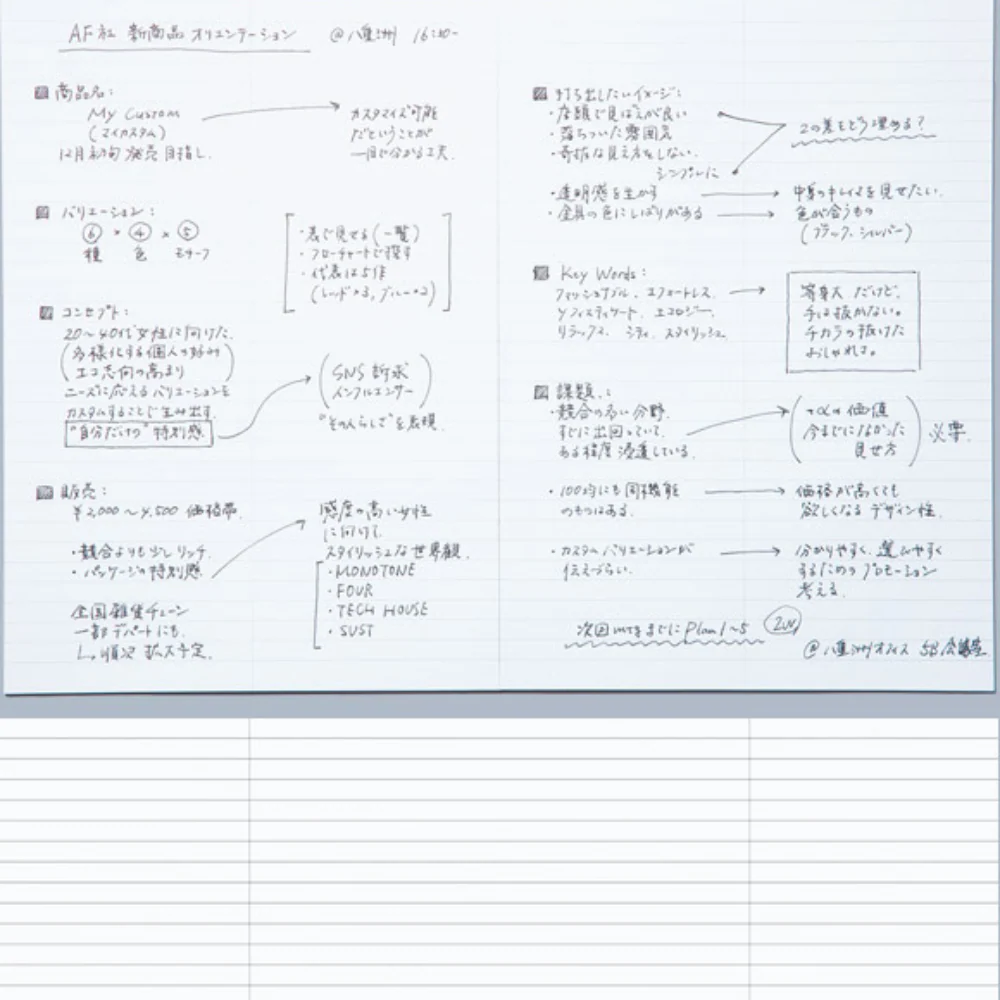 AF社 新商品 オリエンテーション @八重洲 16:30-
商品名:
My Custom
(マイカスタム)
12月初旬 発売目指し.
カスタマイズ可能
だということが
一目で分かる工夫.
バリエーション:
⑥ × ④ × ⑤
種 色 モチーフ
・表で見せる(一覧)
・フローチャートで探す
・代表は5作
(レッド×3, ブルー×2)
コンセプト:
20〜40代女性に向けた.
(多様化する個人の好み
エコ志向の高まり)
ニーズに応えるバリエーションを
カスタムすることで生み出す.
"自分だけの"特別感.
(SNS訴求
インフルエンサー)
"その人らしさ"を表現.
販売:
¥2,000〜4,500 価格帯.
・競合よりも少しリッチ.
・パッケージの特別感
全国雑貨チェーン
一部デパートにも.
順次 拡大予定.
感度の高い女性
に向けて
スタイリッシュな世界観.
・MONOTONE
・FOUR
・TECH HOUSE
・SUST
打ち出したいイメージ:
・店頭で見ばえが良い
・落ちついた雰囲気
・奇抜な見え方をしない.
シンプルに
2の差をどう埋める?
・透明感を生かす
・金具の色にしばりがある
中身のキレイさを見せたい.
色が合うもの
(ブラック、シルバー)
Key Words:
ファッショナブル、エフォートレス、
ソフィスティケート、エコロジー、
リラックス、シティ、スタイリッシュ
等身大だけど、
手は抜かない。
チカラの抜けた
おしゃれさ。
課題:
・競合の多い分野.
すでに出回っていて.
ある程度 浸透している.
(+αの価値
今までになかった
見せ方) 必要.
・100均にも同機能
のものはある.
価格が高くても
欲しくなる デザイン性.
・カスタムバリエーションが
伝えづらい.
分かりやすく、選びやすく
するための プロモーション
考える.
次回mtgまでにPlan1〜5 2W
@八重洲オフィス 5B会議室